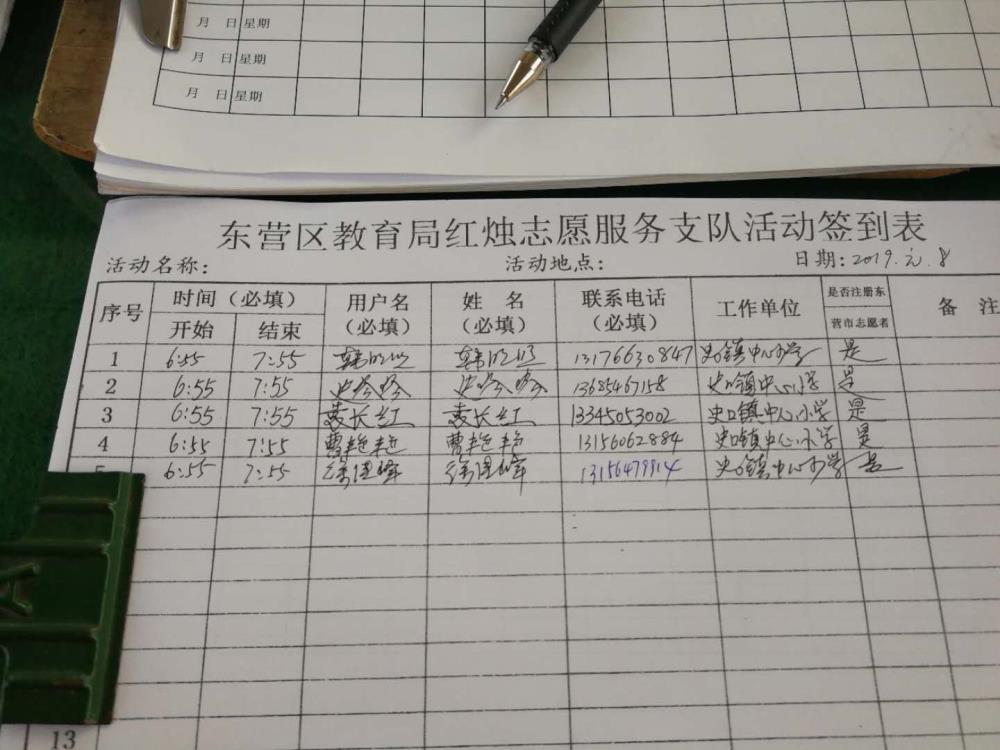 月 日 星期
月 日 星期
月 日 星期
东营区教育局红烛志愿服务支队活动签到表
活动名称: 活动地点: 日期: 2019. 元. 8
序号 时间（必填） 用户名（必填） 姓 名（必填） 联系电话（必填） 工作单位 是否注册东营市志愿者 备 注
开始 结束
1 6:55 7:55 韩 韩 13176630847 史口镇中心小学 是
2 6:55 7:55 史 史 13685467158 史口镇中心小学 是
3 6:55 7:55 袁长红 袁长红 13345053002 史口镇中心小学 是
4 6:55 7:55 曹艳艳 曹艳艳 13156062884 史口镇中心小学 是
5 6:55 7:55 徐国峰 徐国峰 13156479914 史口镇中心小学 是
13